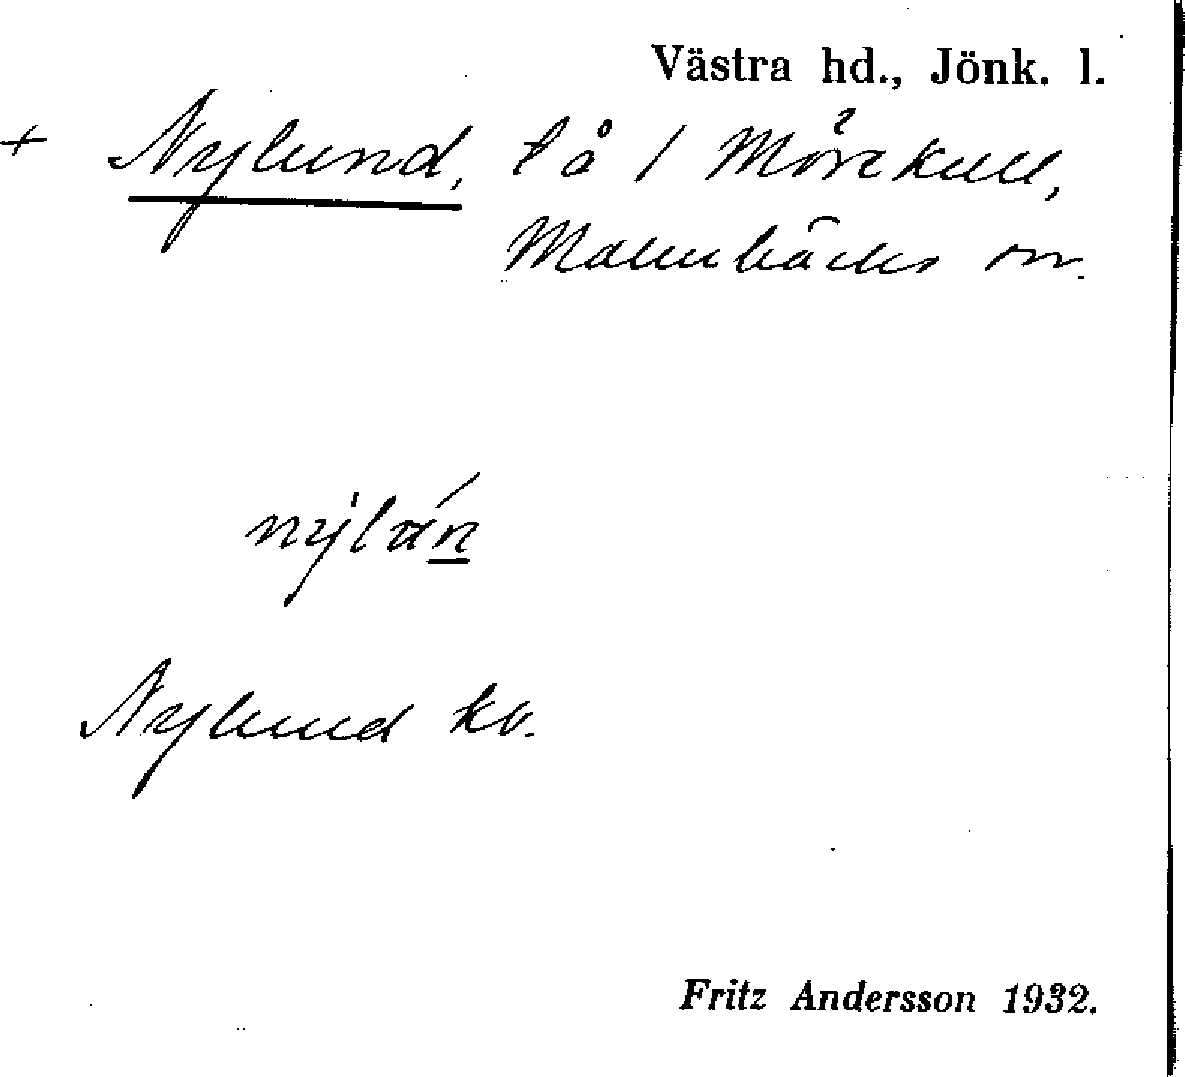 Västra hd., Jönk. l.
+ Nylund, tå / Mörekull,
Malmbäcks sn.
Nylund kv.
Fritz Andersson 1932.